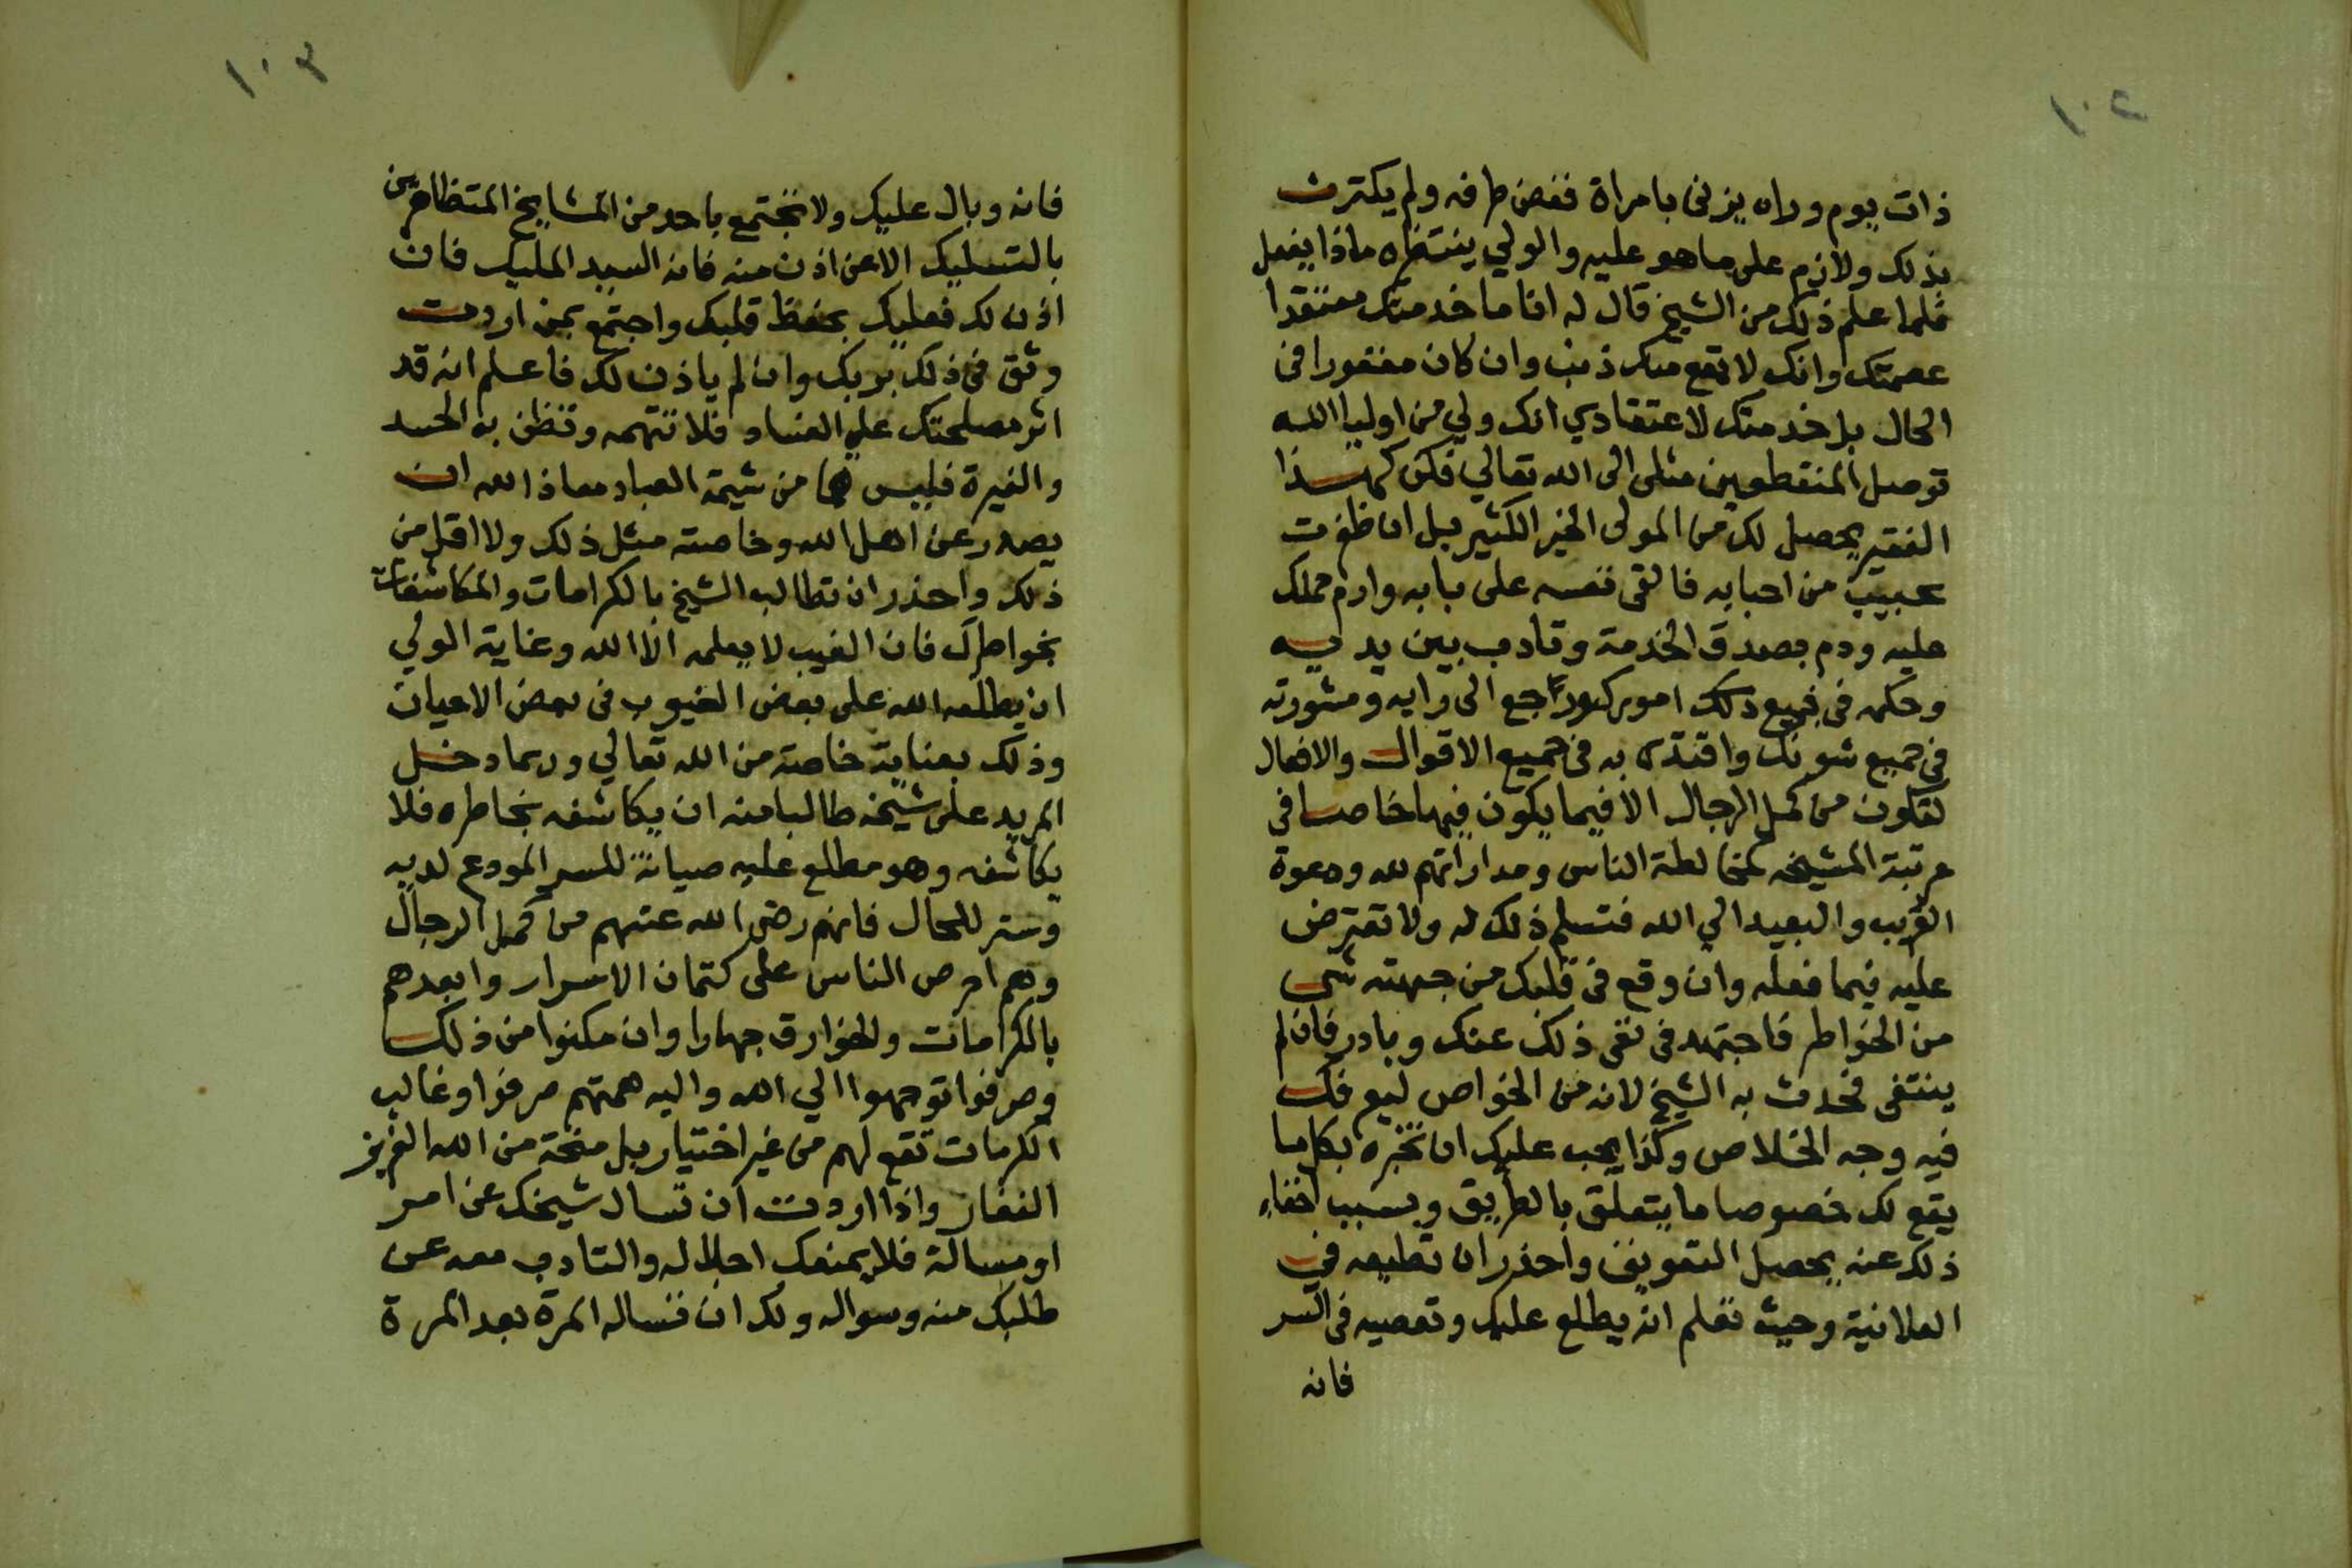 ١٠٢
ذات يوم وراه يزنى بامراة فغض طرفه ولم يكترث
بذلك ولازم على ما هو عليه والولي ينتظره ماذا يفعل
فلما علم ذلك من الشيخ قال له انا ما خدمتك معتقدا
عصمتك وانك لا تقع منك ذنب وان كان مغفورا فى
الحال بل خدمتك لاعتقادي انك ولي من اوليا الله
توصل المنقطعين مثلى الى الله تعالي فكن كهذا
الفقير يحصل لك من المولى الخير الكثير بل ان ظفرت
بحبيب من احبابه فالقى نفسه على بابه وارم حملك
عليه ودم بصدق الخدمة وتادب بين يديه
وحكمه فى جميع ذلك امورك وراجع الى رايه ومشورته
فى جميع شونك واقتدى به فى جميع الاقوال والافعال
لتكون من كمل الرجال الا فيما يكون فيها خاصا فى
مرتبة المشيخه كمخالطة الناس ومداراتهم لله ودعوة
القريب والبعيد الي الله فتسلم ذلك له ولا تعترض
عليه فيما فعله وان وقع فى قلبك من جهته شى
من الخواطر فاجتهد فى نفى ذلك عنك وبادر فان لم
ينتفى فحدث به الشيخ لانه من الخواص ليعرفك
فيه وجه الخلاص وكذا يجب عليك ان تخبره بكل ما
يقع لك خصوصا ما يتعلق بالطريق وبسبب اخفاء
ذلك عنه يحصل التعويق واحذر ان تطيعه فى
العلانية وحيث تعلم انه يطلع عليك وتعصيه فى السر
فانه
١٠٣
فانه وبال عليك ولا تجتمع باحد من المشايخ المتظاهرين
بالتسليك الا عن اذن منه فانه السيد المليك فان
اذن لك فعليك بحفظ قلبك واجتمع بمن اردت
وثق فى ذلك بربك وان لم ياذن لك فاعلم انه قد
اثر مصلحتك على الفساد فلا تتهمه وتظن به الحسد
والغيرة فليس هما من شيمة العباد معاذ الله ان
يصدر عن اهل الله وخاصته مثل ذلك ولا اقل من
ذلك واحذر ان تطالب الشيخ بالكرامات والمكاشفات
بخواطرك فان الغيب لا يعلمه الا الله وغاية الولي
ان يطلعه الله على بعض الغيوب فى بعض الاحيان
وذلك بعناية خاصة من الله تعالي وربما دخل
المريد على شيخه طالبا منه ان يكاشفه بخاطره فلا
يكاشفه وهو مطلع عليه صيانة للسر المودع لديه
وستر للحال فانهم رضى الله عنهم من كمل الرجال
وهم احرص الناس على كتمان الاسرار وابعدهم
بالكرامات والخوارق جهارا وان مكنوا من ذلك
وصرفوا توجهوا الي الله واليه همتهم صرفوا وغالب
الكرمات تقع لهم من غير اختيار بل منحة من الله العزيز
الغفار واذا اردت ان تسال شيخك عن امر
او مسالة فلا يمنعك اجلاله والتادب معه عن
طلبك منه وسواله ولك ان تساله المرة بعد المرة